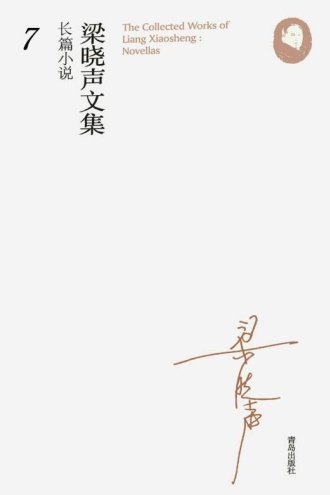 7
梁晓声文集
长篇小说
The Collected Works of
Liang Xiaosheng :
Novellas
梁晓声
青岛出版社